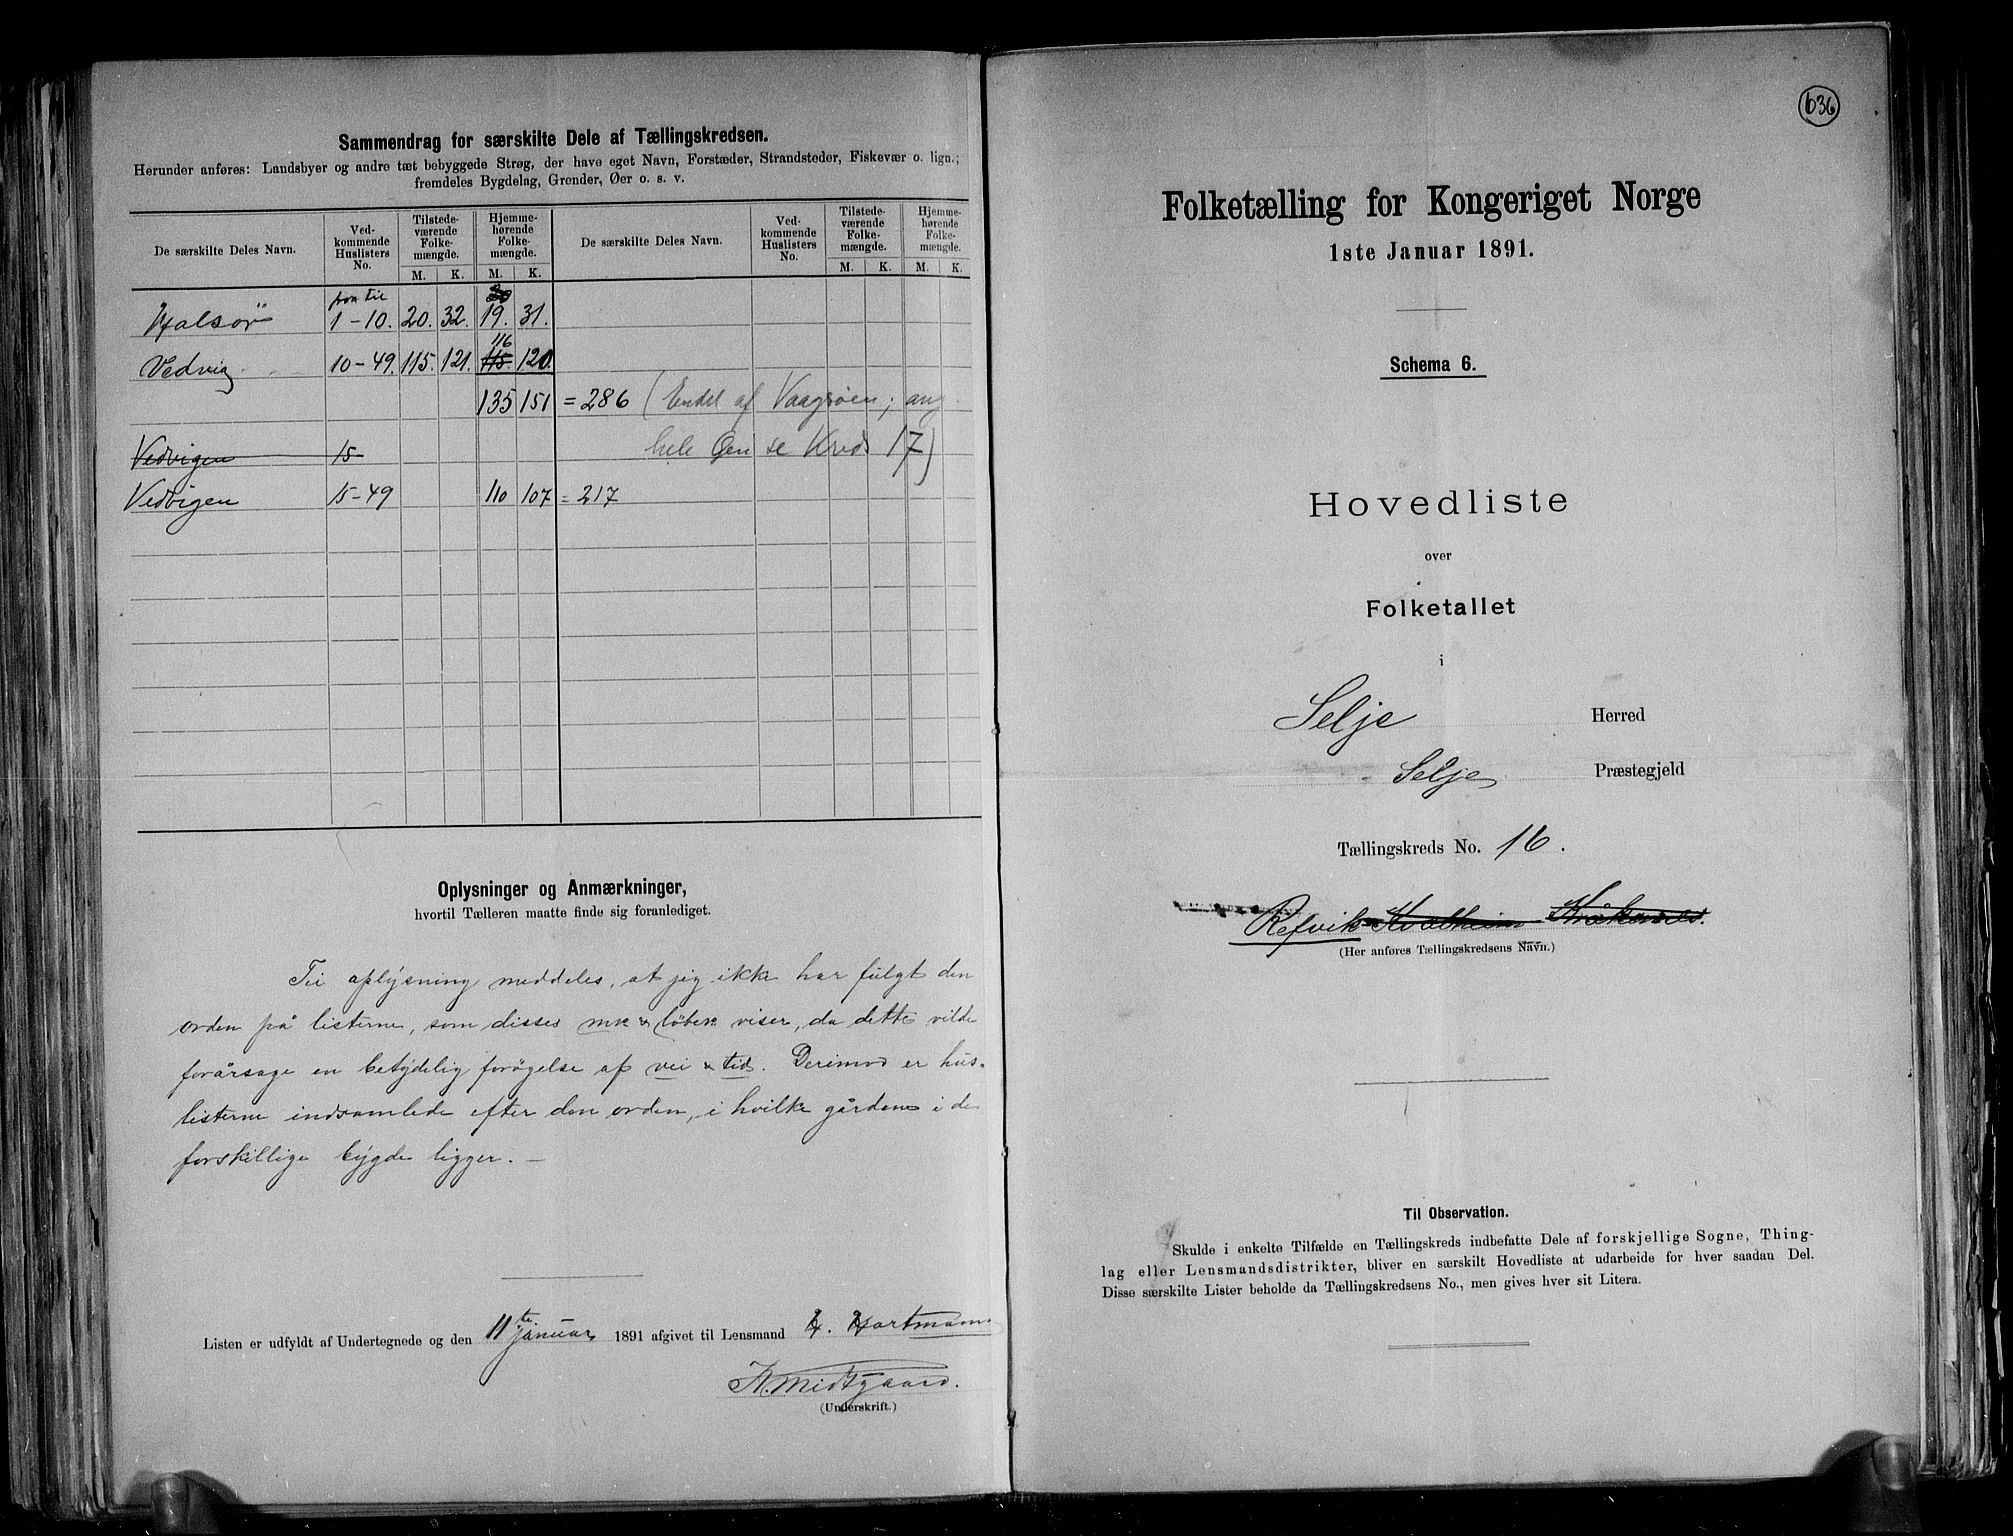 Sammendrag for særskilte Dele af Tællingskredsen.
Herunder anføres: Landsbyer og andre tæt bebyggede Strøg, der have eget Navn, Forstæder, Strandsteder, Fiskevær o. lign.;
fremdeles Bygdelag, Grender, Øer o. s. v.
De særskilte Deles Navn. Ved-kommende Huslisters No. Tilstede-værende Folke-mængde. Hjemme-hørende Folke-mængde. De særskilte Deles Navn. Ved-kommende Huslisters No. Tilstede-værende Folke-mængde. Hjemme-hørende Folke-mængde.
M. K. M. K. M. K. M. K.
fra til 20
Halsør 1-10. 20. 32. 19. 31.
116
Vedvig 10-49. 115. 121. 115. 120.
135 151 = 286 (Endel af Vaagsøen; ang.
Vedvigen 15 hele Øen se Kreds 17)
Vedvigen 15-49 110 107 = 217
Oplysninger og Anmærkninger,
hvortil Tælleren maatte finde sig foranlediget.
Til oplysning meddeles, at jeg ikke har fulgt den
orden på listerne, som disses løbe viser, da dette vilde
forårsage en betydelig forøgelse af vei & tid. Derimod er hus-
listerne indsamlede efter den orden, i hvilke gårdene i de
forskillige bygde ligger. —
Listen er udfyldt af Undertegnede og den 11te januar 1891 afgivet til Lensmand Hartmann
K. Midtgaard.
(Underskrift.)
636
Folketælling for Kongeriget Norge
1ste Januar 1891.
Schema 6.
Hovedliste
over
Folketallet
i
Selje Herred
Selje Præstegjeld
Tællingskreds No. 16.
Refvik Kvalheim Kråkenes.
(Her anføres Tællingskredsens Navn.)
Til Observation.
Skulde i enkelte Tilfælde en Tællingskreds indbefatte Dele af forskjellige Sogne, Thing-
lag eller Lensmandsdistrikter, bliver en særskilt Hovedliste at udarbeide for hver saadan Del.
Disse særskilte Lister beholde da Tællingskredsens No., men gives hver sit Litera.